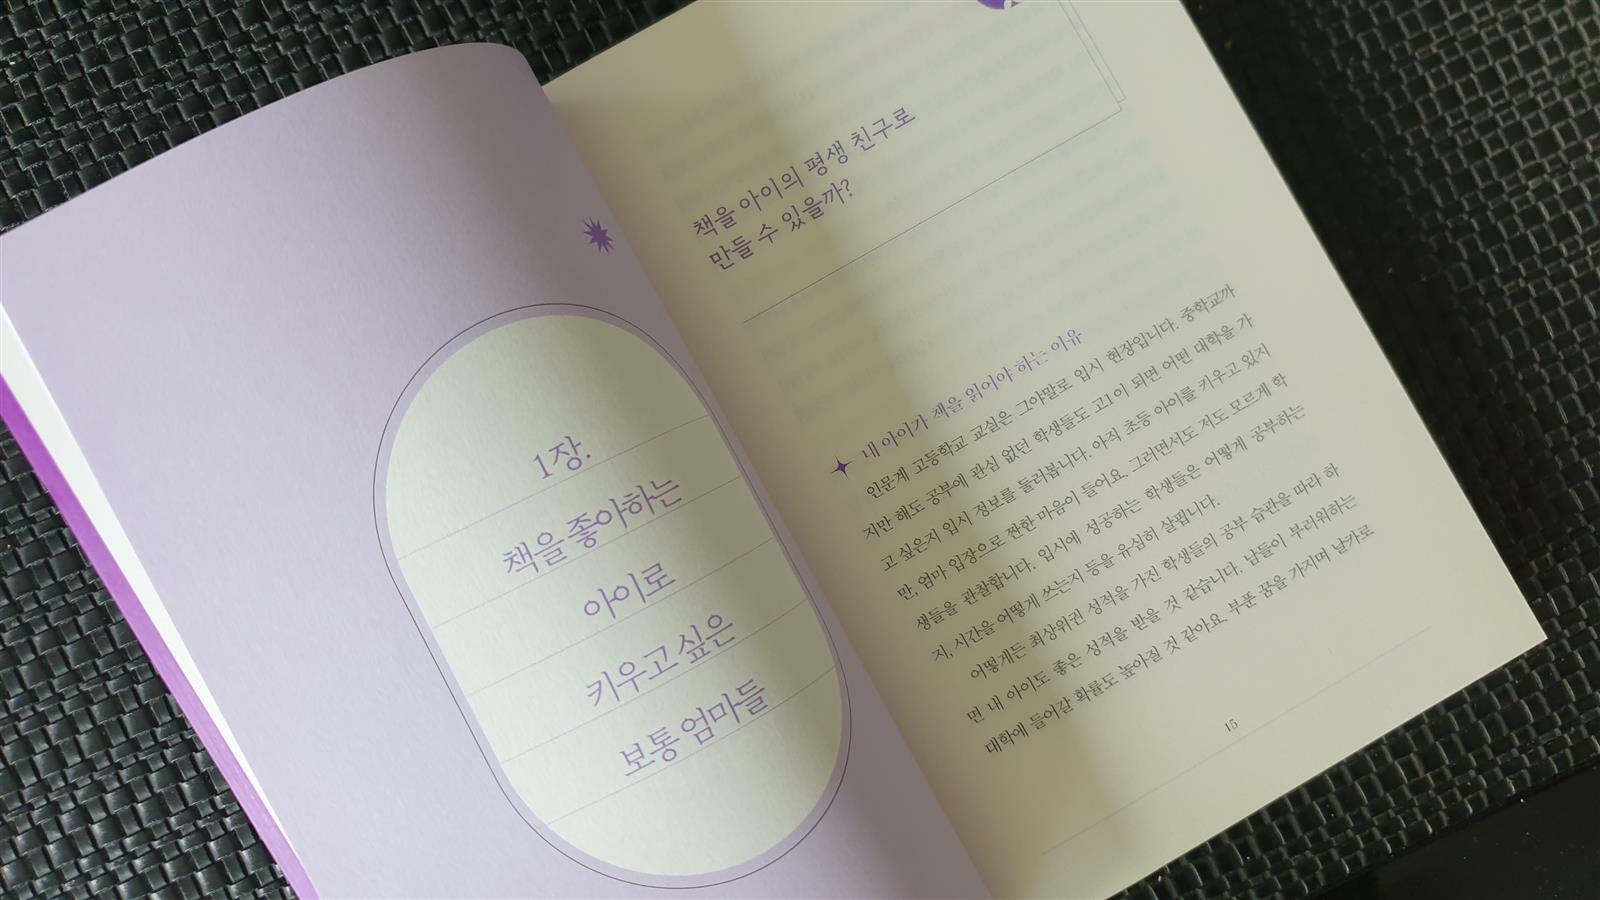 1장.
책을 좋아하는
아이로
키우고 싶은
보통 엄마들
책을 아이의 평생 친구로
만들 수 있을까?
내 아이가 책을 읽어야 하는 이유
인문계 고등학교 교실은 그야말로 입시 현장입니다. 중학교까
지만 해도 공부에 관심 없던 학생들도 고1이 되면 어떤 대학을 가
고 싶은지 입시 정보를 둘러봅니다. 아직 초등 아이를 키우고 있지
만, 엄마 입장으로 짠한 마음이 들어요. 그러면서도 저도 모르게 학
생들을 관찰합니다. 입시에 성공하는 학생들은 어떻게 공부하는
지, 시간을 어떻게 쓰는지 등을 유심히 살핍니다.
어떻게든 최상위권 성적을 가진 학생들의 공부 습관을 따라 하
면 내 아이도 좋은 성적을 받을 것 같습니다. 남들이 부러워하는
대학에 들어갈 확률도 높아질 것 같아요. 부푼 꿈을 가지며 날카로
15